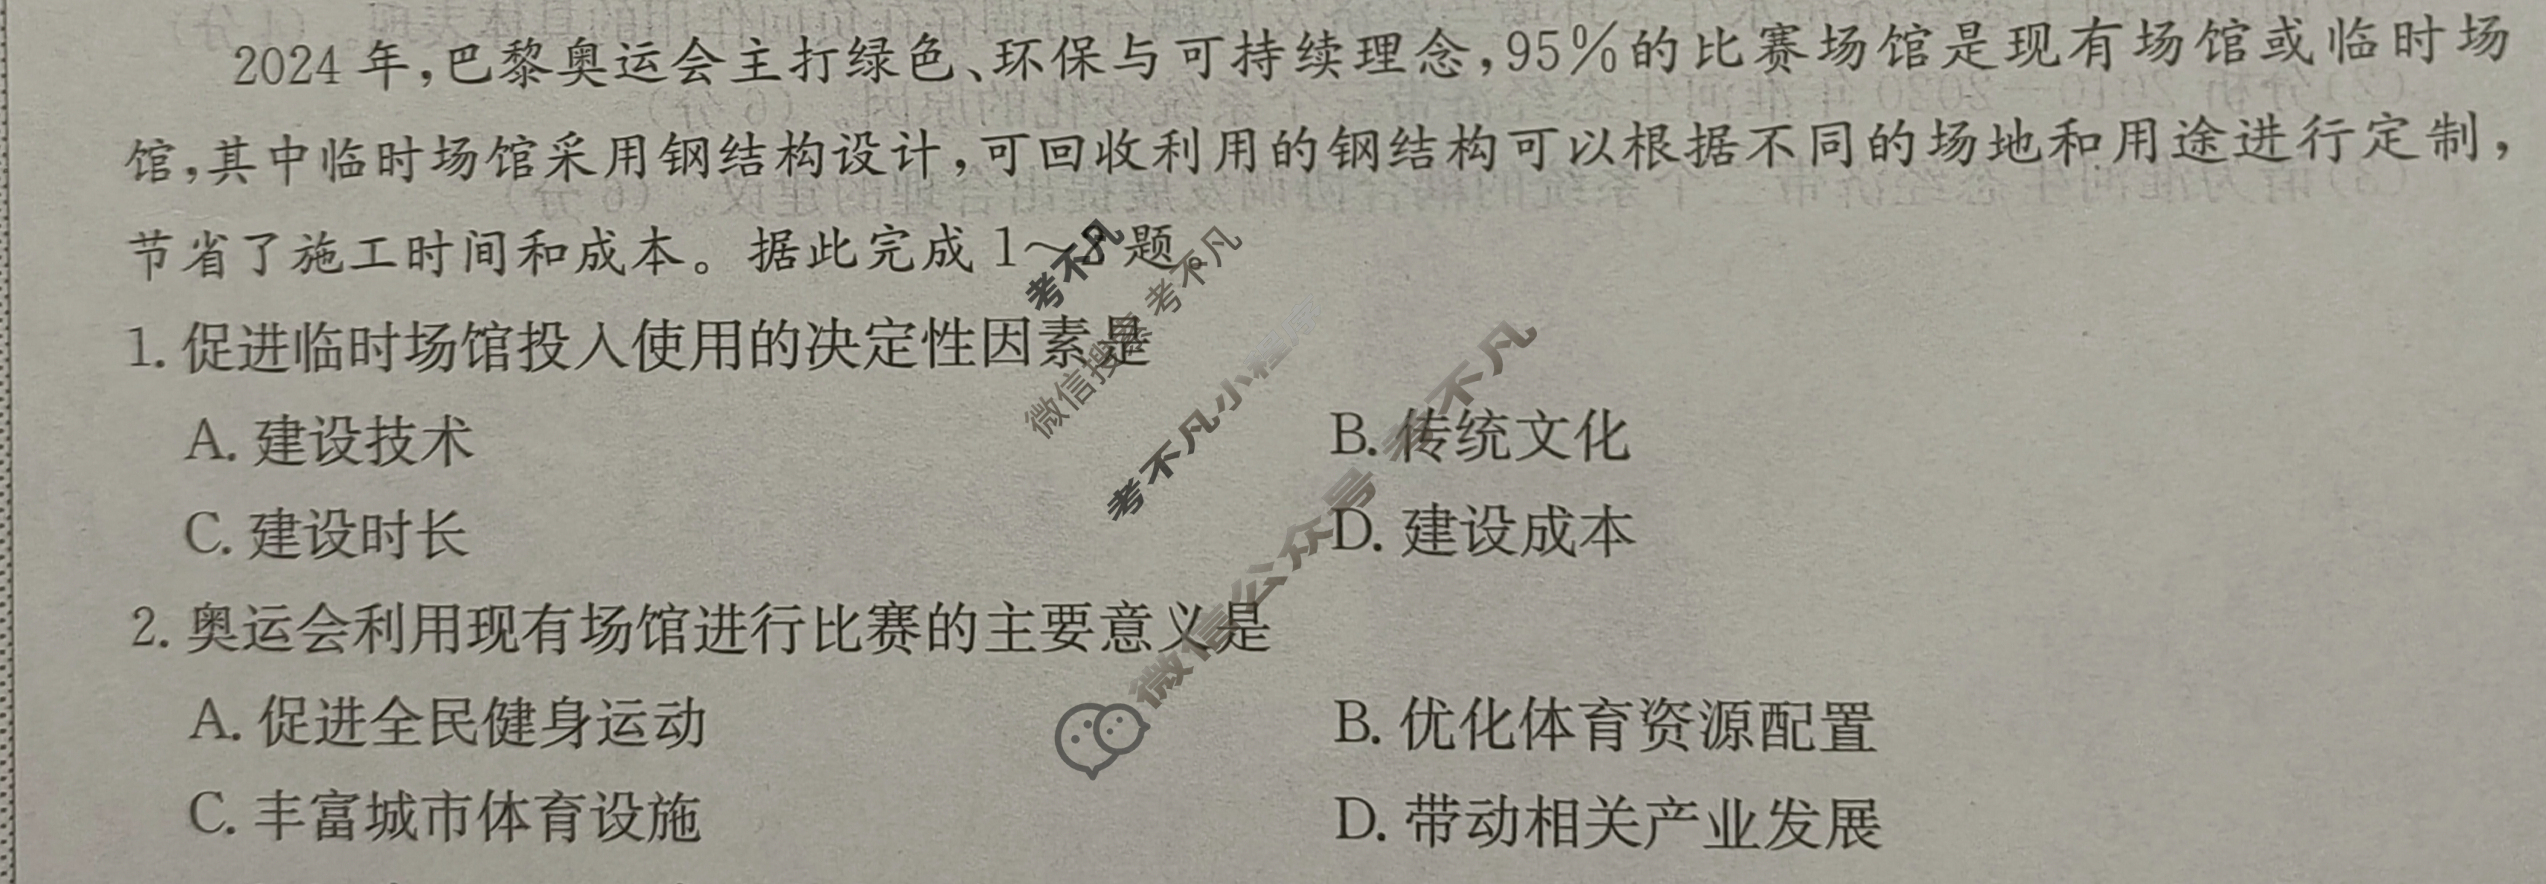 2024年,巴黎奥运会主打绿色、环保与可持续理念,95%的比赛场馆是现有场馆或临时场
馆,其中临时场馆采用钢结构设计,可回收利用的钢结构可以根据不同的场地和用途进行定制,
节省了施工时间和成本。据此完成1～2题。
1. 促进临时场馆投入使用的决定性因素是
A. 建设技术
B. 传统文化
C. 建设时长
D. 建设成本
2. 奥运会利用现有场馆进行比赛的主要意义是
A. 促进全民健身运动
B. 优化体育资源配置
C. 丰富城市体育设施
D. 带动相关产业发展
考不凡
微信搜索 考不凡
考不凡小程序
微信公众号 考不凡